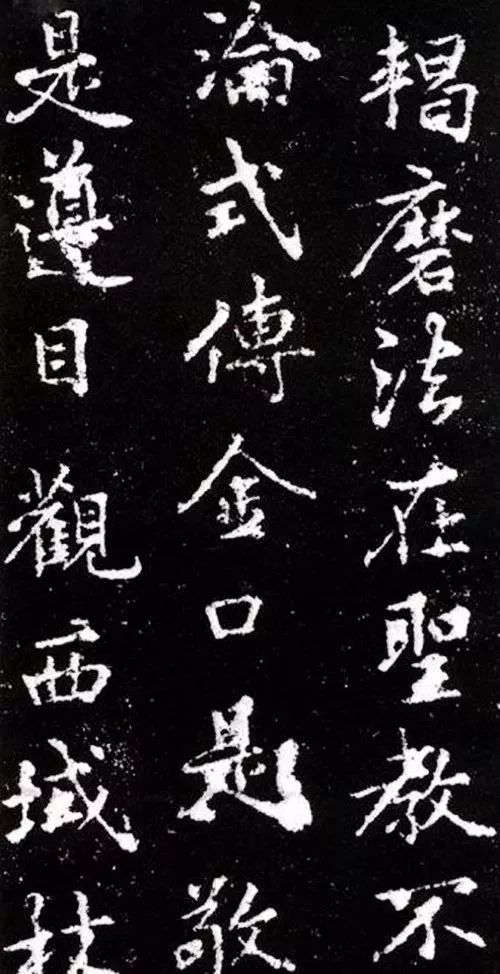 羯磨法在聖教不
淪式傳金口是敬
是遵目觀西域林